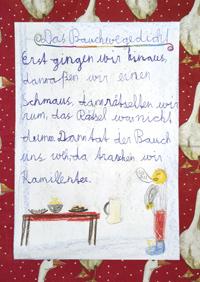 Das Bauchwegedicht
Erst gingen wir hinaus,
dan aßen wir einen
Schmaus, dan rätselten wir
rum, das Rätsel war nicht
dumm. Dann tat der Bauch
uns weh, da tranken wir
Kamillentee.